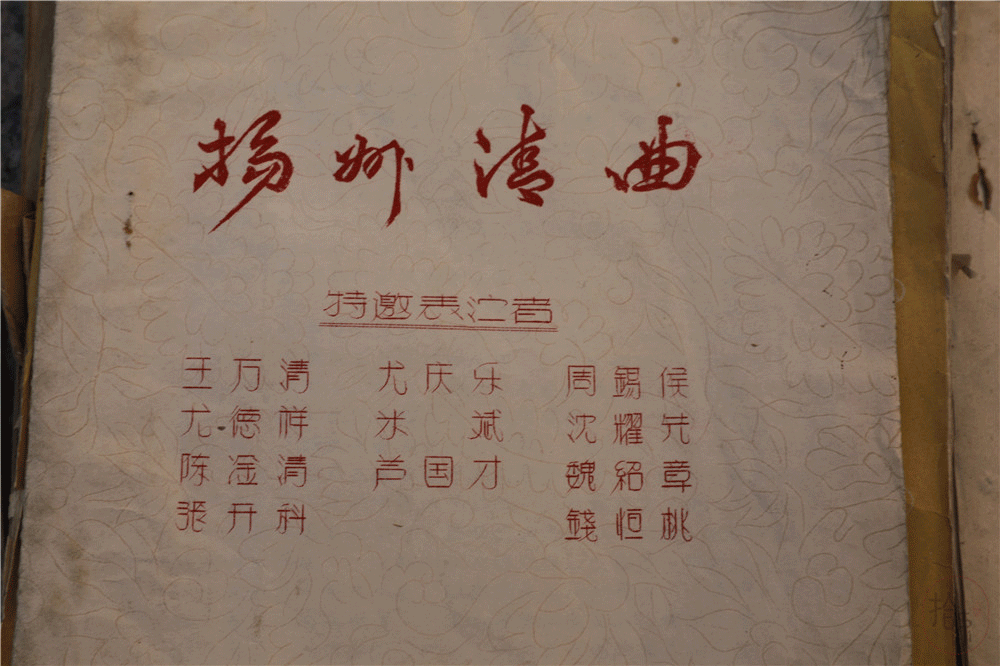 扬州清曲
特邀表演者
王万清 尤庆乐 周錫侯
尤德祥 米斌 沈耀先
陈淦清 芦国才 魏紹章
张开科 錢恒桃
拾